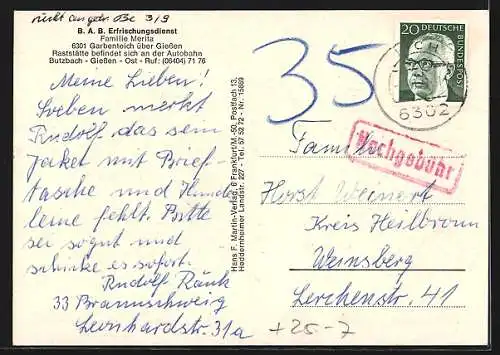 B. A. B. Erfrischungsdienst
Familie Meritz
6301 Garbenteich über Gießen
Raststätte befindet sich an der Autobahn
Butzbach - Gießen - Ost - Ruf: (06404) 71 76
Meine Lieben!
Soeben merkt
Rudolf das sein
Jaket mit Brief-
tasche und Hunde
leine fehlt. Bitte
sei so gut und
schicke es sofort.
Rudolf
33 Braunschweig
Leonhardstr. 31a
Hans F. Martin-Verlag, 6 Frankfurt/M.-50, Postfach 13,
Heddernheimer Landstr. 227 - Tel. 57 52 72 - Nr. 15869
35
20
DEUTSCHE
BUNDESPOST
6302
Nachgebühr
Familie
Horst Weinert
Kreis Heilbronn
Weinsberg
Lerchenstr. 41
+25-7